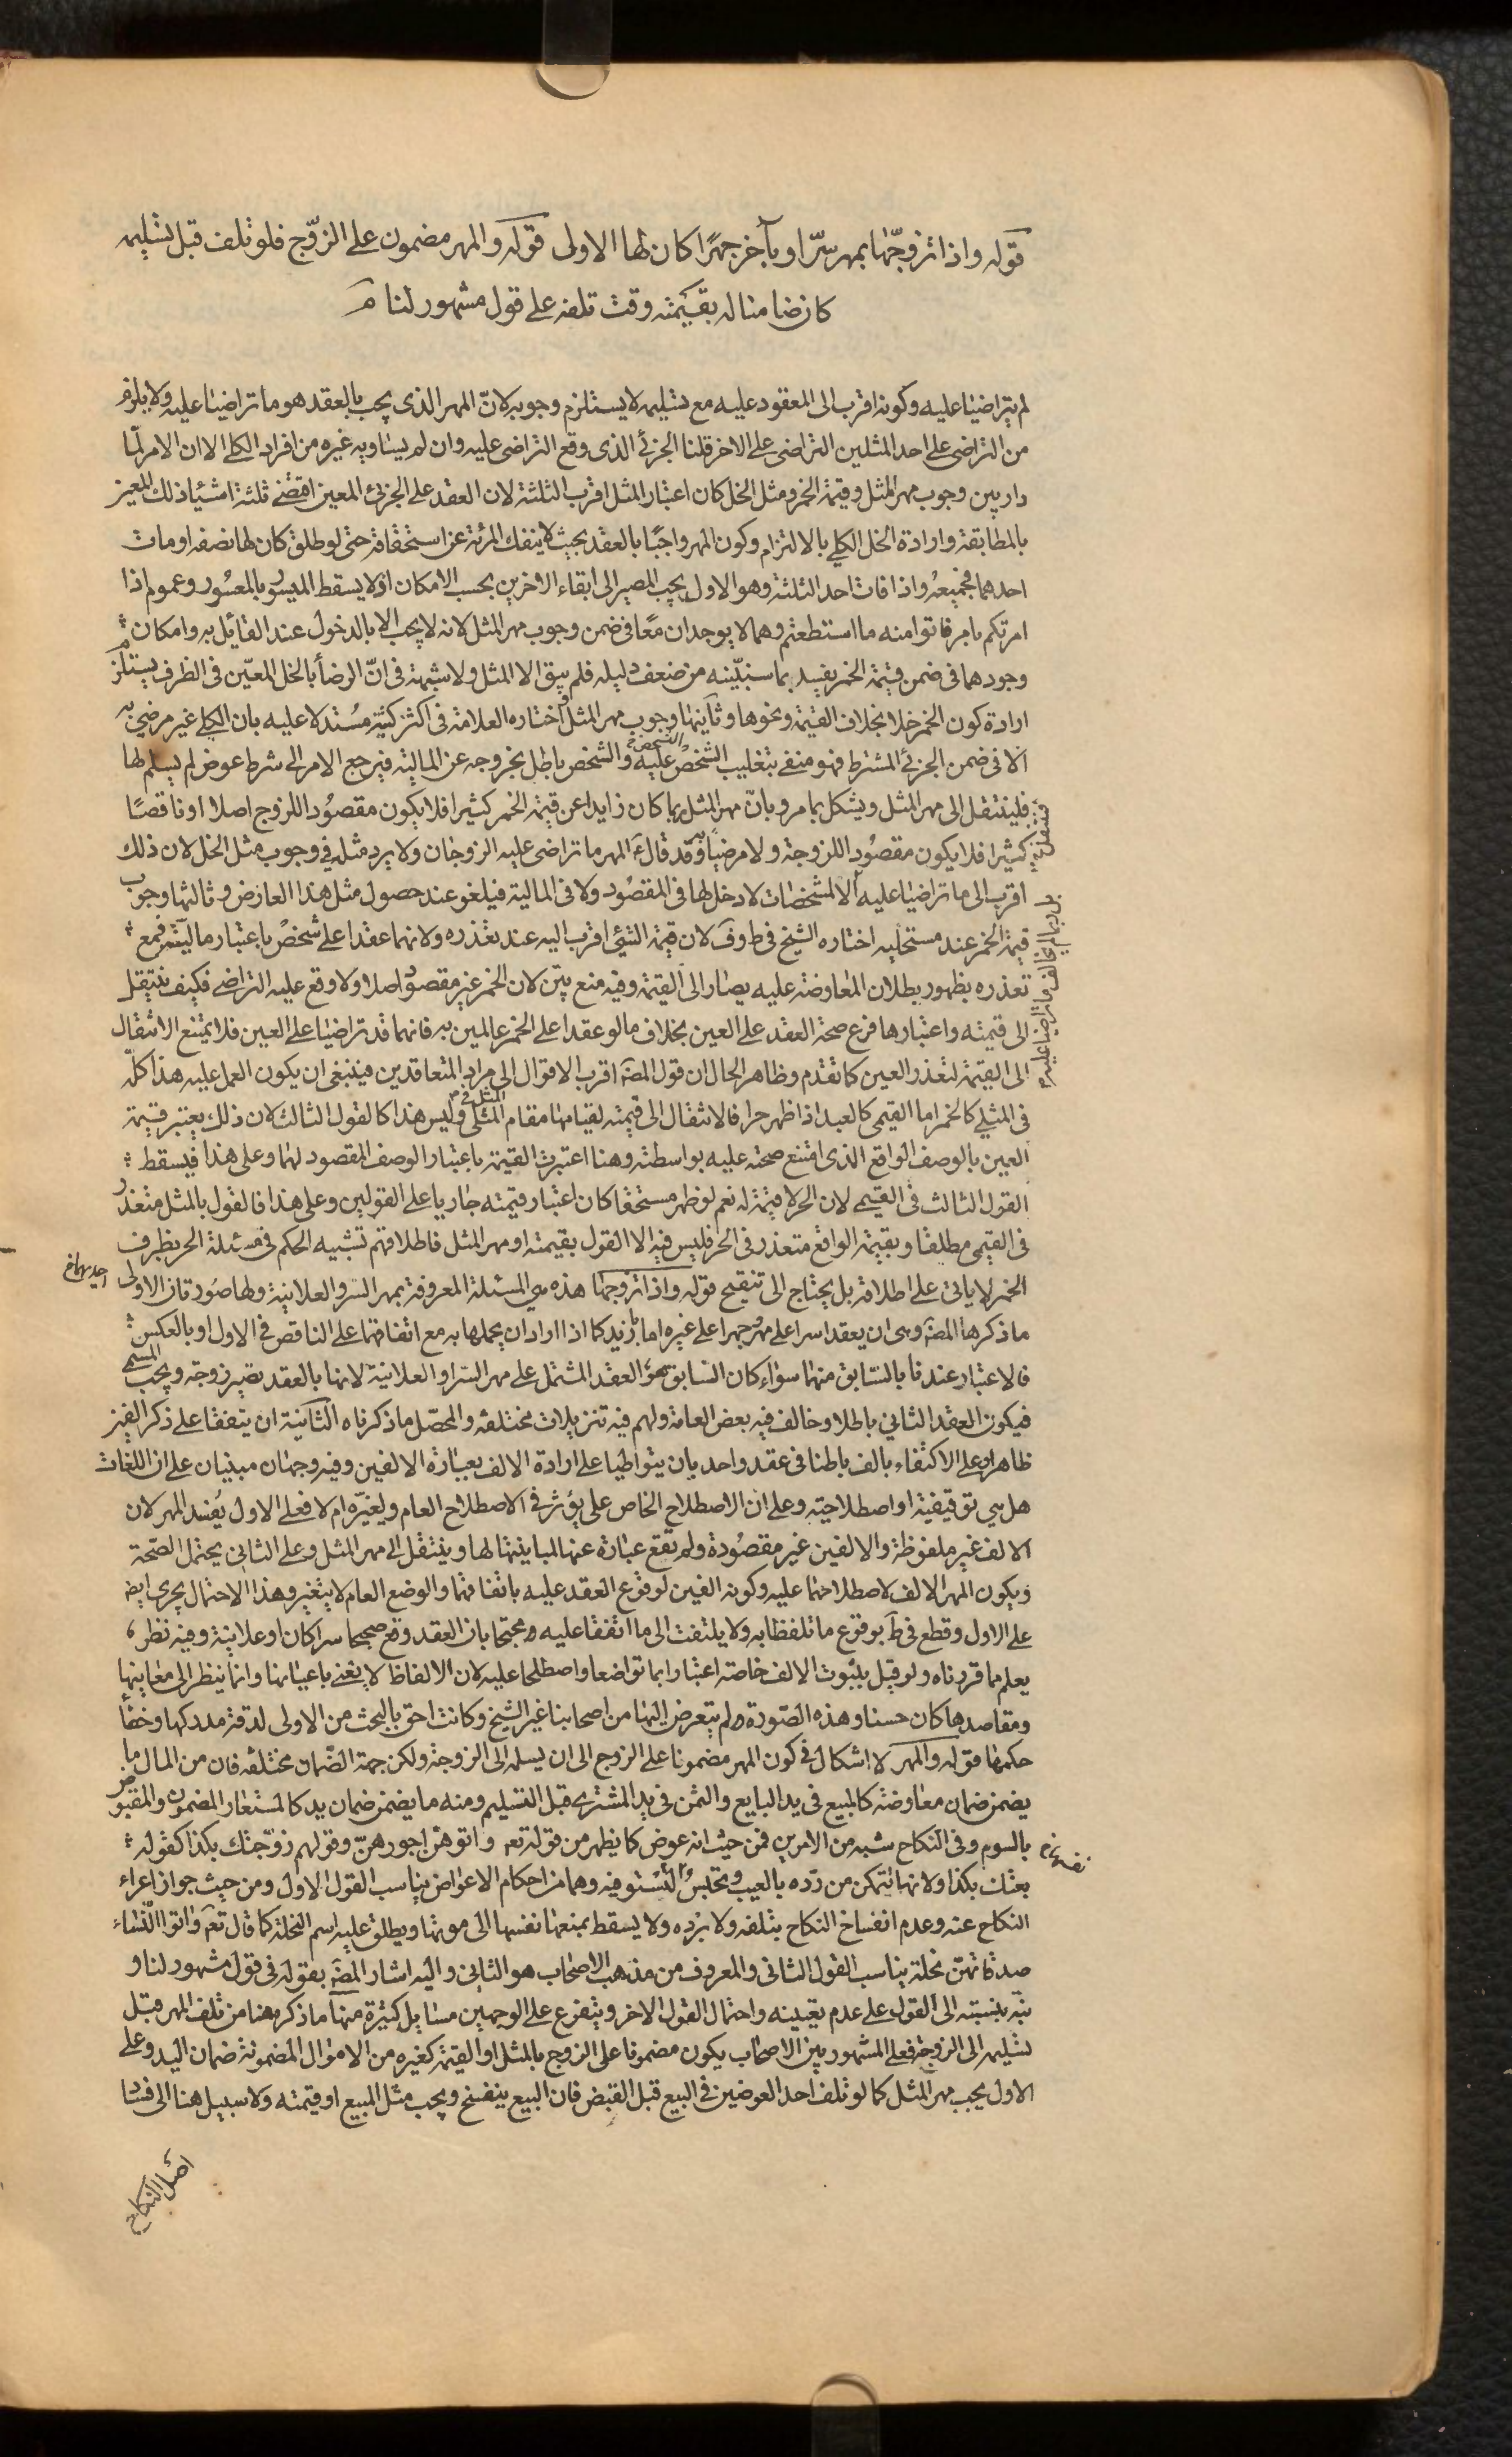 قوله واذا تزوجها بمهر سرّا وبآخر جهرًا كان لها الاولى قوله والمهر مضمون على الزوّج فلو تلف قبل تسليمه
كان ضامنا له بقيمته وقت تلفه على قول مشهور لنا م
لم يتراضيا عليه وكونه اقرب الى المعقود عليه مع تسليمه لا يستلزم وجوبه لانّ المهر الذى يجب بالعقد هو ما تراضيا عليه ولا يلزم
من التراضى على احد المثلين التراضى على الاخر قلنا الجزئى الذى وقع التراضى عليه وان لم يساويه غيره من افراد الكلى الا ان الامر لمّا
دار بين وجوب مهر المثل وقيمة الخمر ومثل الخل كان اعتبار المثل اقرب الثلثة لان العقد على الجزئى المعين اقتضى ثلثة اشياء ذلك المعين
بالمطابقة وارادة الخل الكلى بالالتزام وكون المهر واجبًا بالعقد بحيث لا ينفك المرئة عن استحقاقه حتى لو طلق كان لها نصفه او مات
احدهما فجميعه واذا فات احد الثلثة وهو الاول يجب المصير الى ابقاء الاخرين بحسب الامكان اذ لا يسقط الميسور بالمعسور وعموم اذا
امرتكم بامر فاتوا منه ما استطعتم وهما لا يوجدان معًا فى ضمن وجوب مهر المثل لانه لا يجب الا بالدخول عند القائل به وامكان
وجودهما فى ضمن قيمة الخمر يفسد بما سنبيّنه من ضعف دليله فلم يبق الا المثل ولا شبهة فى انّ الرضا بالخل المعيّن فى الظرف يستلزم
ارادة كون الخمر خلا بخلاف القيمة ونحوها وثانيها وجوب مهر المثل اختاره العلامة فى اكثر كتبه مستدلا عليه بان الكلى غير مرضى به
الا فى ضمن الجزئى المشترط فهو منفى بتغليب الشخص عليه والشخص باطل بخروجه عن المالية فيرجع الامر الى شرط عوض لم يسلم لها
فلينتقل الى مهر المثل ويشكل بما مر وبانّ مهر المثل ربما كان زايدا عن قيمة الخمر كثيرا فلا يكون مقصودا للزوج اصلا او ناقصًا
كثيرا فلا يكون مقصودا للزوجة ولا مرضيا به وقد قال ع المهر ما تراضى عليه الزوجان ولا يرد مثله فى وجوب مثل الخل لان ذلك
اقرب الى ما تراضيا عليه اذ المشخصات لا دخل لها فى المقصود ولا فى المالية فيلغو عند حصول مثل هذا العارض وثالثها وجوب
قيمة الخمر عند مستحليه اختاره الشيخ فى ط وف لان قيمة الشئ اقرب اليه عند تعذره ولانهما عقدا على شخص باعتبار ماليته فمع
تعذره بظهور بطلان المعاوضة عليه يصار الى القيمة وفيه منع بيّن لان الخمر غير مقصود اصلا ولا وقع عليه التراضى فكيف ينتقل
الى قيمته واعتبارها فرع صحة العقد على العين بخلاف ما لو عقدا على الخمر عالمين به فانهما قد تراضيا على العين فلا يمتنع الانتقال
الى القيمة لتعذر العين كما تقدم وظاهر الحال ان قول المصَ اقرب الاقوال الى مراد المتعاقدين فينبغى ان يكون العمل عليه هذا كلّه
فى المثلى كالخمر اما القيمى كالعبد اذا ظهر حرا فالانتقال الى قيمته لقيامها مقام المثل فى المثلى وليس هذا كالقول الثالث لان ذلك يعتبر قيمة
العين بالوصف الواقع الذى امتنع صحته عليه بواسطته وهنا اعتبرت القيمة باعتبار الوصف المقصود لهما وعلى هذا فيسقط
القول الثالث فى القيمى لان الحر لا قيمة له نعم لو ظهر مستحقا كان اعتبار قيمته جاريا على القولين وعلى هذا فالقول بالمثل متعذر
فى القيمى مطلقا وبقيمة الواقع متعذر فى الحر فليس فيه الا القول بقيمته او مهر المثل فاطلاقهم تشبيه الحكم فى مسئلة الحر بظرف
الخمر لا ياتى على اطلاقه بل يحتاج الى تنقيح قوله واذا تزوجها هذه هى المسئلة المعروفة بمهر السر والعلانية ولها صورتان الاولى احديهما
ما ذكرها المصَ وهى ان يعقدا سرا على مهر وجهرا على غيره اما بازيد كما اذا ارادان يجملها به مع اتفاقهما على الناقص فى الاول او بالعكس
فالاعتبار عندنا بالسّابق منهما سواء كان السابق هو العقد المشتمل على مهر السّر او العلانية لانها بالعقد تصير زوجة ويجب المسمى
فيكون العقد الثانى باطلا وخالف فيه بعض العامة ولهم فيه تنزيلات مختلفه والمحصّل ما ذكرناه الثانية ان يتفقا على ذكر الفين
ظاهرا وعلى الاكتفاء بالف باطنا فى عقد واحد بان يتواطيا على ارادة الالف بعبارة الالفين وفيه وجهان مبنيان على ان اللغات
هل هى توقيفية او اصطلاحية وعلى ان الاصطلاح الخاص على يؤثر فى الاصطلاح العام ويغيّره ام لا فعلى الاول يفسد المهر لان
الالف غير ملفوظة والالفين غير مقصودة ولم تقع عبارة عنها لمباينتها لها وينتقل الى مهر المثل وعلى الثانى يحتمل الصّحة
ويكون المهر الالف لاصطلاحهما عليه وكونه الفين لوقوع العقد عليه باتفاقهما والوضع العام لا يتغير وهذا الاحتمال يجرى ايضَ
على الاول وقطع فى ط بوقوع ما تلفظا به ولا يلتفت الى ما اتفقا عليه محتجا بان العقد وقع صحيحا سرا كان او علانية وفيه نظر
يعلم مما قررناه ولو قيل بثبوت الالف خاصة اعتبارا بما تواضعا واصطلحا عليه لان الالفاظ لا تعنى باعيانها وانما ينظر الى معانيها
ومقاصدها كان حسنا وهذه الصّورة لم يتعرض اليها من اصحابنا غير الشيخ وكانت احق بالبحث من الاولى لدقة مدركها وخفاء
حكمها قوله والمهر لا اشكال فى كون المهر مضمونا على الزوج الى ان يسلمه الى الزوجة ولكن جهة الضّمان مختلفه فان من المال ما
يضمن ضمان معاوضة كالمبيع فى يد البايع والثمن فى يد المشترى قبل التسليم ومنه ما يضمن ضمان يد كالمستعار المضمون والمقبوض
بالسوم وفى النكاح شبه من الامرين فمن حيث انه عوض كما يظهر من قوله تعه واتوهن اجورهنّ وقولهم زوّجتك بكذا كقوله
بعتك بكذا ولانها تتمكن من ردّه بالعيب وتحبس نفسها لتستوفيه وهما من احكام الاعواض يناسب القول الاول ومن حيث جواز اعراء
النكاح عنه وعدم انفساخ النكاح بتلفه ولا برده ولا يسقط بمنعها نفسها الى موتها ويطلق عليه اسم النحلة كما قال تعه واتوا النساء
صدقاتهنّ نحلة يناسب القول الثانى والمعروف من مذهب الاصحاب هو الثانى واليه اشار المصَ بقوله فى قول مشهور لنا و
نبّه بنسبته الى القول على عدم تعيينه واحتمال القول الاخر ويتفرع على الوجهين مسايل كثيرة منها ما ذكر هنا من تلف المهر قبل
تسليمه الى الزوجة فعلى المشهور بين الاصحاب يكون مضمونا على الزوج بالمثل او القيمة كغيره من الاموال المضمونة ضمان اليد وعلى
الاول يجب مهر المثل كما لو تلف احد العوضين فى البيع قبل القبض فان البيع ينفسخ ويجب مثل المبيع او قيمته ولا سبيل هنا الى فساد
اصل النكاح